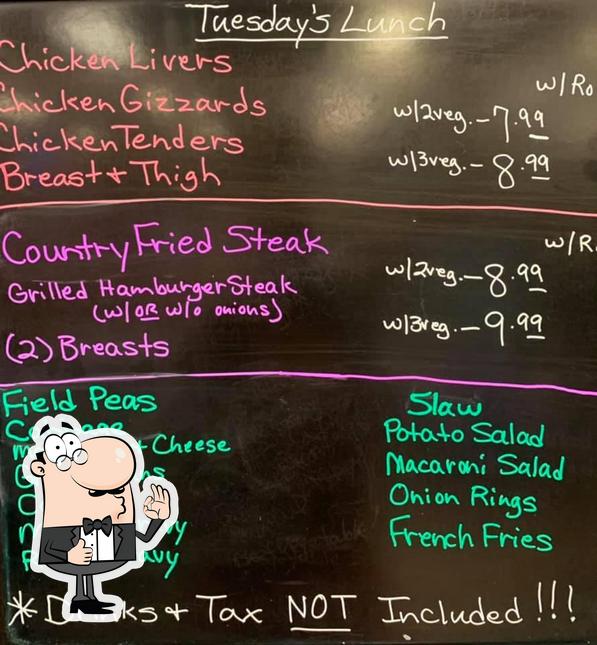 Tuesday's Lunch
Chicken Livers
Chicken Gizzards
Chicken Tenders
Breast + Thigh
w/Ro
w/2veg. - 7.99
w/3veg. - 8.99
Country Fried Steak
Grilled Hamburger Steak
(w/ OR w/o onions)
(2) Breasts
w/R
w/2veg. - 8.99
w/3veg. - 9.99
Field Peas
+ Cheese
Slaw
Potato Salad
Macaroni Salad
Onion Rings
French Fries
* Drinks + Tax NOT Included !!!